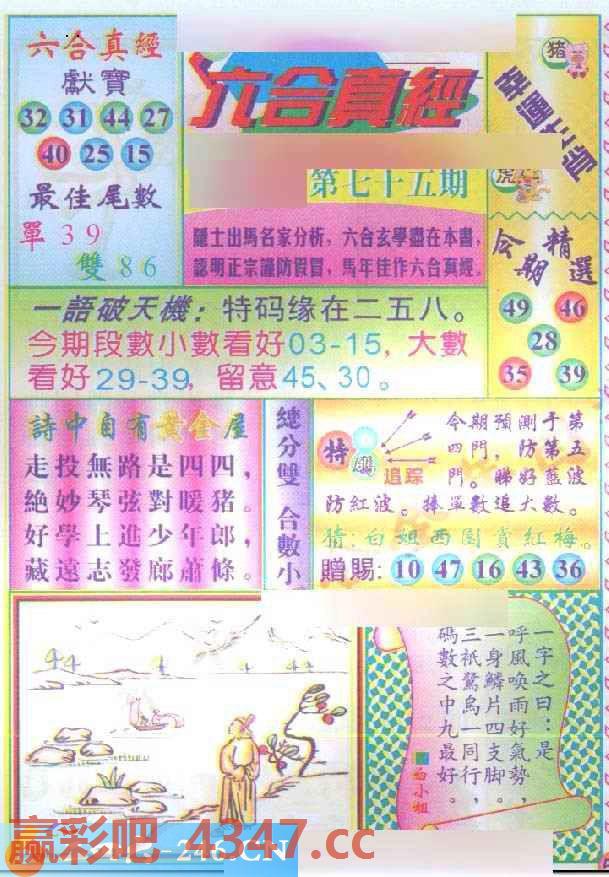 六合真經
獻寶
32 31 44 27
40 25 15
最佳尾數
單39
雙86
六合真經
第七十五期
隱士出馬名家分析，六合玄學盡在本書，
認明正宗謹防假冒，馬年佳作六合真經。
豬
虎
今期精選
49 46
28
35 39
一語破天機：特码缘在二五八。
今期段數小數看好03-15，大數
看好29-39，留意45、30。
詩中自有黃金屋
走投無路是四四，
絶妙琴弦對暖猪。
好學上進少年郎，
藏遠志發廊蕭條。
總分雙 合數小
特碼
追踪
今期預測于第
四門，防第五
門。睇好藍波
防紅波。捧單數追大數。
猜：白姐西園賞紅梅。
贈賜：10 47 16 43 36
一字之曰：是
呼風喚雨好氣勢，
一身鱗片四支脚。
三祇鴛鳥一同行，
碼數之中九最好。
赢彩吧-4347.cc
246.CN